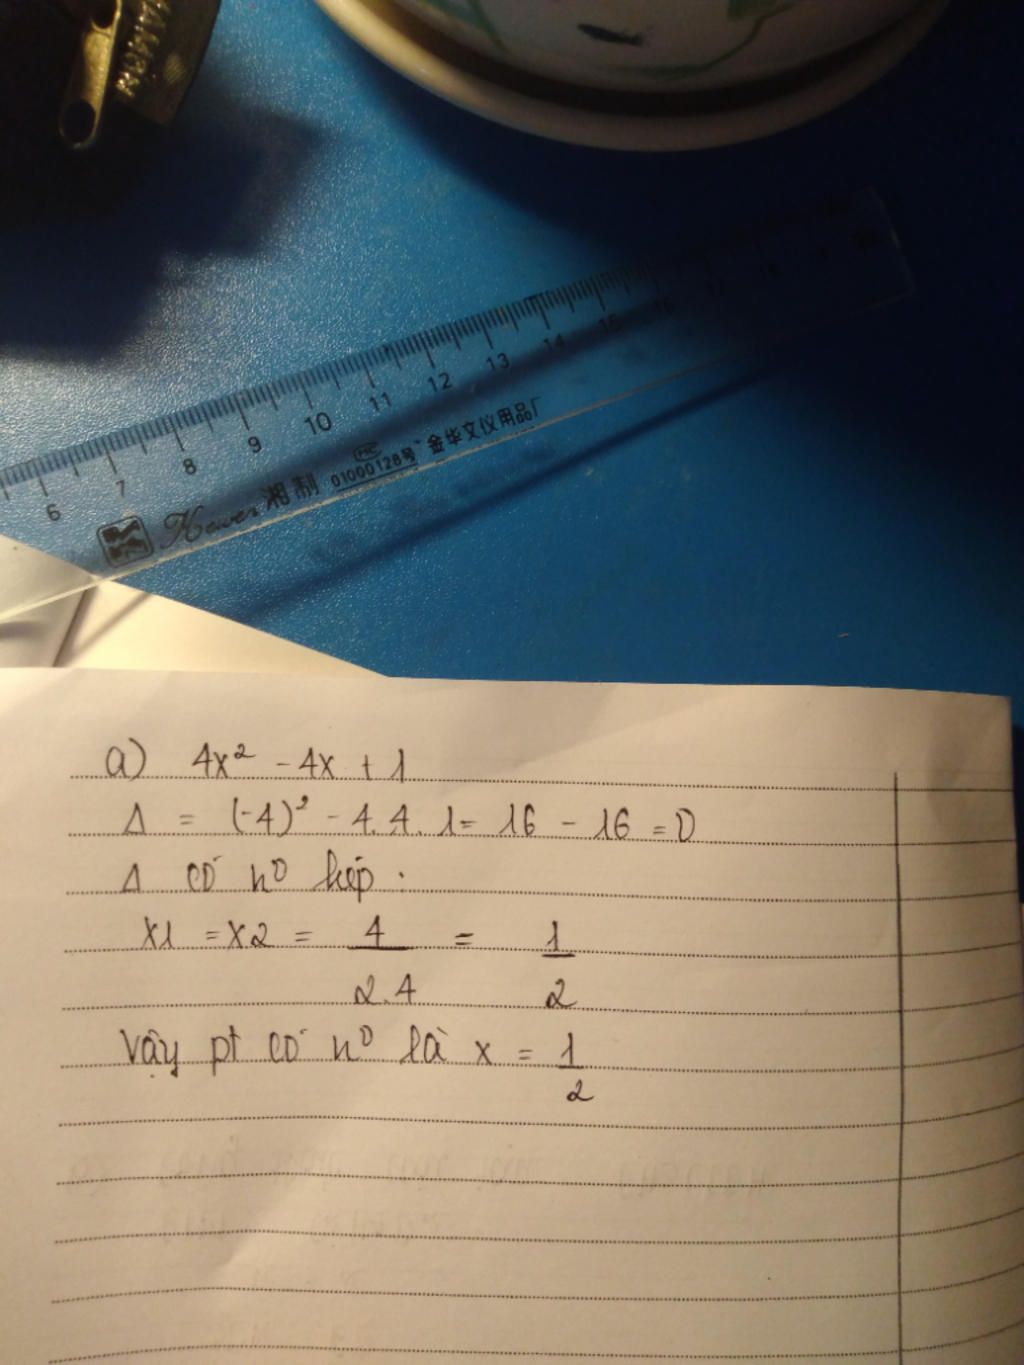 6 7 8 9 10 11 12 13 14 15 16
Hewen 湘制 MC 01000128号 金华文仪用品厂
a) 4x² - 4x + 1
Δ = (-4)² - 4.4.1 = 16 - 16 = 0
Δ có nº kép.
x1 = x2 = 4/2.4 = 1/2
Vậy pt có nº là x = 1/2